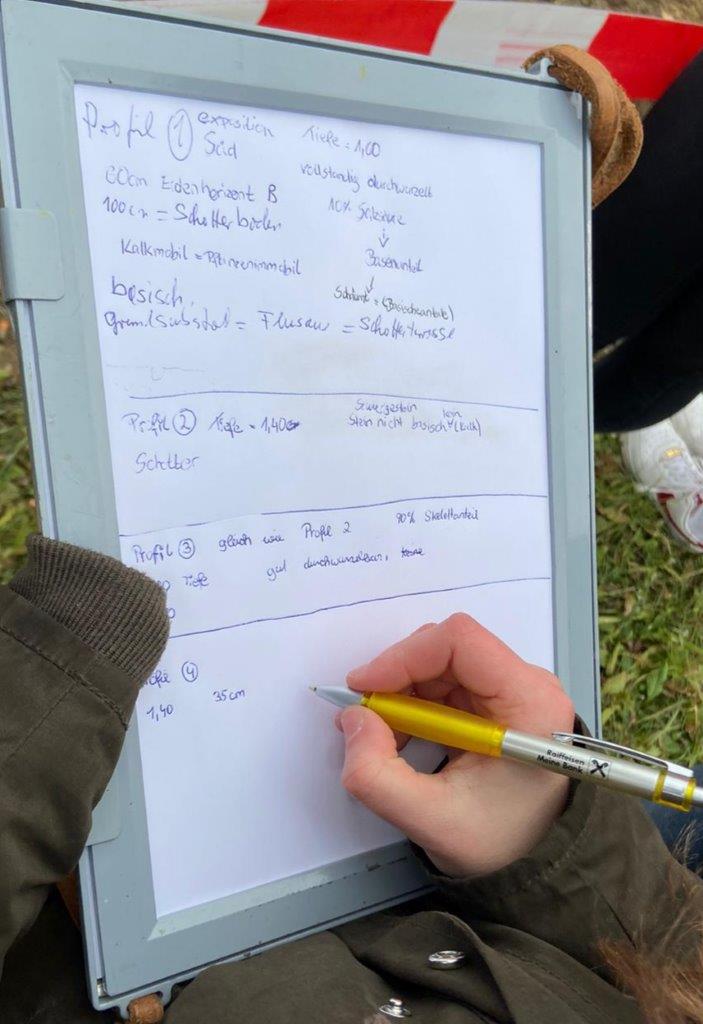 Profil ① exposition Süd
Tiefe = 1,00
vollständig durchwurzelt
60cm Erdenhorizont B
100cm = Schotterboden
10% Salzsäure
↓
Basenanteil
↓
Schäumt = (Basischeanteile)
Kalkmobil = Pflanzenimmobil
basisch,
grundsubstat = Flusau = Schotterterrasse
Profil ② Tiefe = 1,40
Stein nicht basisch kein (Kalk)
Schotter
Profil ③ gleich wie Profil 2 90% Skelettanteil
Tiefe gut durchwurzelbar, keine
④
1,40 35cm
Raiffeisen
Meine Bank